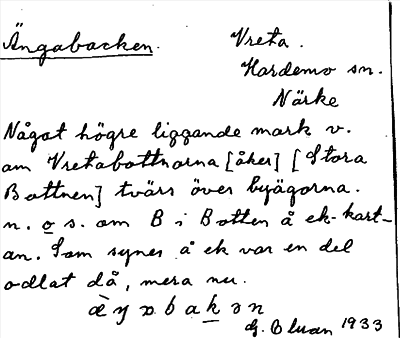 Ängabacken.
Vreta.
Hardemo sn.
Närke
Något högre liggande mark v.
om Vretabottnarna [åker] [Stora
Bottnen] tvärs över byägorna.
n. o s. om B i Botten å ek-kart-
an. Som synes å ek var en del
odlat då, mera nu.
ӕ̀ŋɒbakən
1933